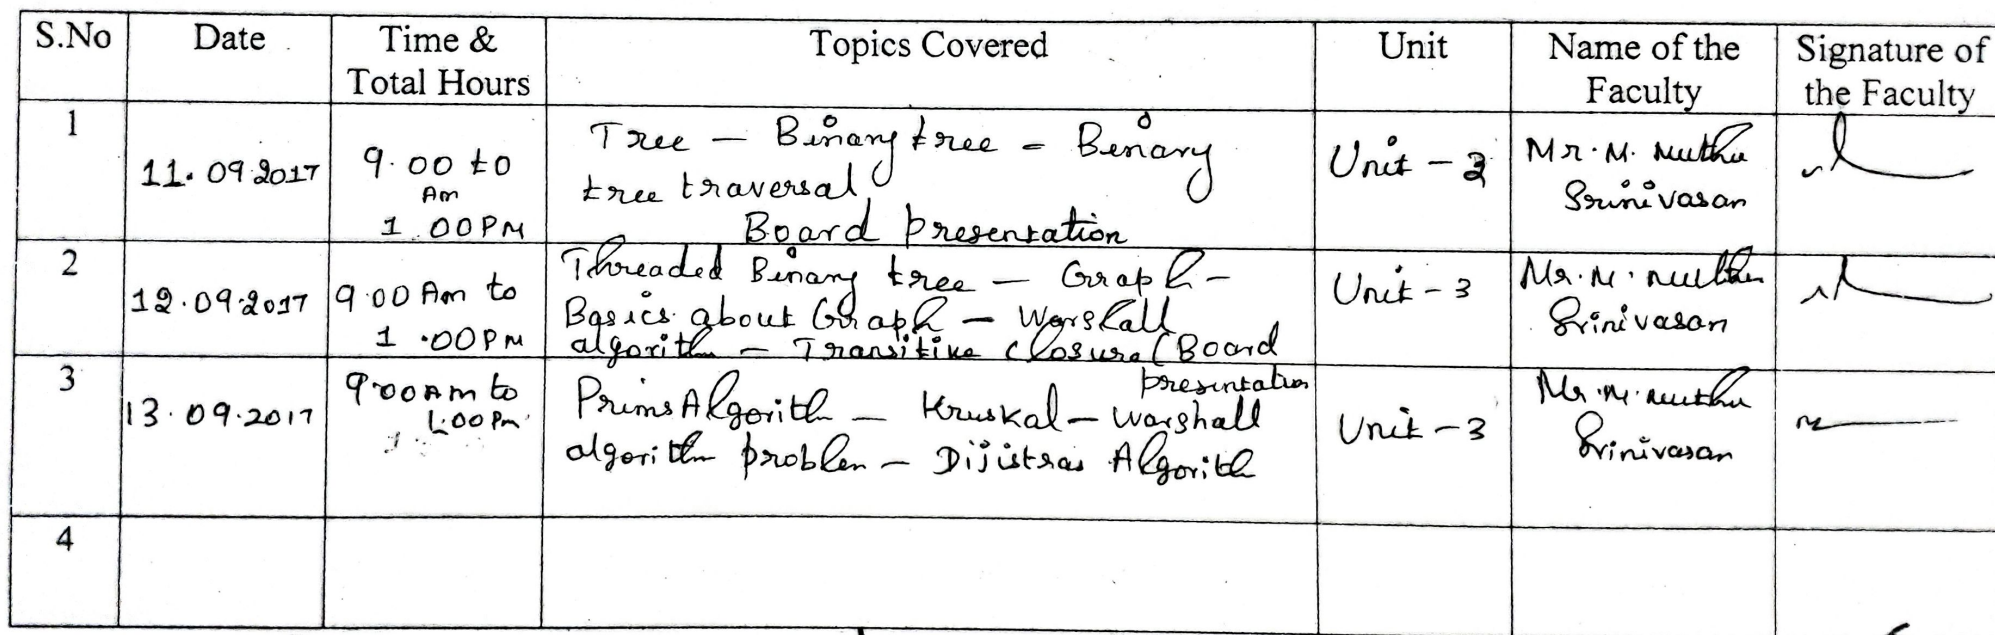 S.No Date Time & Total Hours Topics Covered Unit Name of the Faculty Signature of the Faculty
1 11.09.2017 9.00 to Am 1.00PM Tree – Binary tree – Binary tree traversal Board presentation Unit – 3 Mr. M. Muthu Srinivasan
2 12.09.2017 9.00 Am to 1.00PM Threaded Binary tree – Graph – Basics about Graph – Warshall algorithm – Transitive closure (Board presentation Unit – 3 Mr. M. Muthu Srinivasan
3 13.09.2017 9.00 AM to 1.00 Pm Prims Algorith – Kruskal – Warshall algorithm problem – Dijistras Algorith Unit – 3 Mr. M. Muthu Srinivasan
4